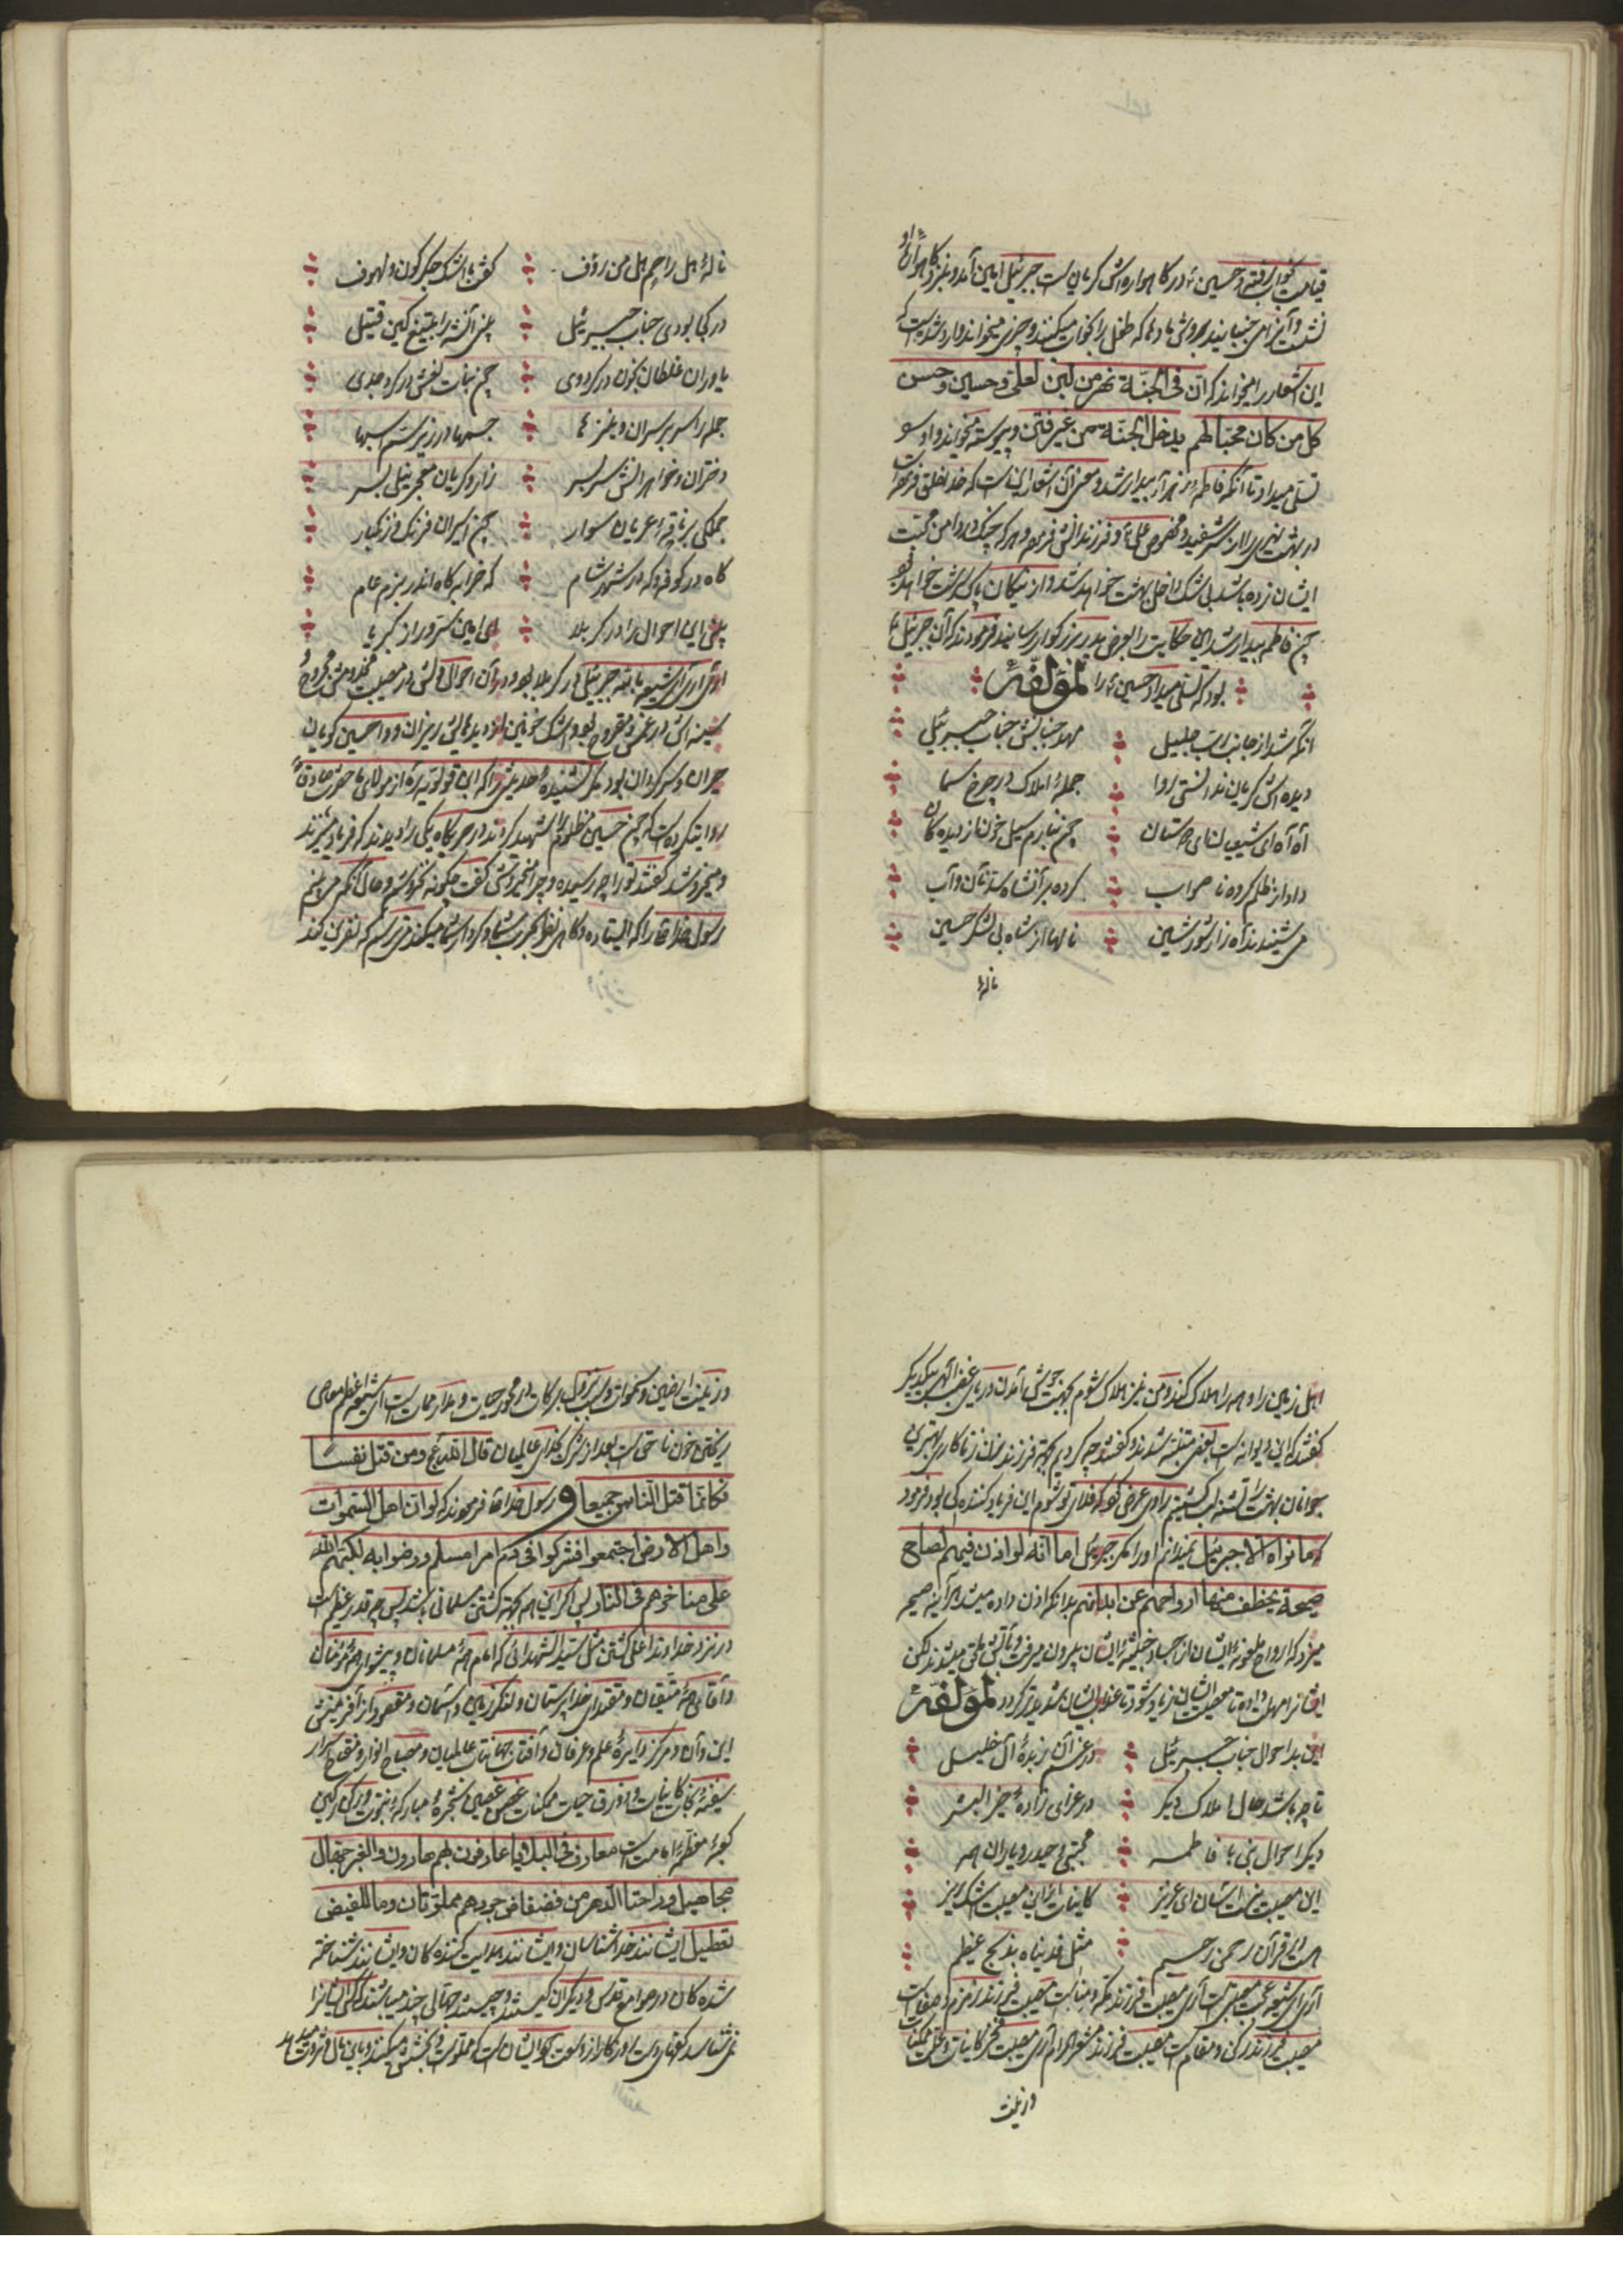 قیامت بخواب رفته و حسین در کاهواره اش کریان است جبرئیل امین آمد و بنزد کاهواره او
نشست و آنرا می جنبانید بروش مادرها که طفل را بخواب میکنند و چیزی میخواند وارد شده است که
این اشعار را میخواند که انّ فی الجنّة نهر من لبن لعلی و حسین و حسن
کل من کان محبّا لهم یدخل الجنّة من غیر فتن و پیوسته میخواند و او را
تسلّی میداد تا آنکه فاطمه زهرا بیدار شد و معنی آن اشعار این است که خدا خلق فرموده
در بهشت نهری را از شیر سفید و مخصوص علی و فرزندانش فرموده و هر که چنک در دامن محبّت
ایشان زده باشد بی شک داخل بهشت خواهد شد و از نیکان پاک سرشت خواهد بود
چون فاطمه بیدار شد این حکایت را بعرض پدر بزرکوار رسانید فرمودند که آن جبرئیل
بود که تسلّی میداد حسین را لمؤلّفه
انکه شد از جانب ربّ جلیل مهد جنبانش جناب جبرئیل
دیده اش کریان ندانستی روا جملهٔ املاک در چرخ سما
آه آه ای شیعیان چون نبارم سیل خون از دیده کان
داد از ظلم کروه ناصواب کرده بر آنشاه بستند نان و آب
می شنیدند آه زار شور و شین نالها از شاه بی لشکر حسین
نالهٔ
نالهٔ هل راحم هل من رؤف کفتی با اشک جکر کون و لهوف
در کجا بودی جناب جبرئیل بیند آنشه را بتیغ کین قتیل
یاوران غلطان بخون در کرد وی چون بنات نعش در کرد جدی
جمله را سر بر سران و نیزها جسمها در زیر سمّ اسبها
دختران و خواهرانش سربسر زار و کریان معجر نیلی بسر
جملکی بر ناقهٔ عریان سوار چون اسیران فرنک و زنکبار
کاه در کوفه و که در شهر شام که خرابه کاه اندر بزم عام
بیند این احوال را در کربلا ای امین سرّ و راز کبریا
آری آری ای شیعه البته جبرئیل در کربلا بود و در آن احوال دلش در مصیبت مخدومش مجروح و
سینه اش در غمش مقروح بود و اشک خونین از دیدهایش ریزان و وا حسین کویان
حیران و سرکردان بود مکر نشنیدهٔ حدیثی را که ابن قولویه ره از مولای ما حضرت صادق
روایت کرده است که چون حسین مظلوم را شهید کردند در حربکاه یکی را دیدند که فریاد میزند
و میخروشد کفتند تو را چه رسیده و چرا میخروشی کفت چکونه نخروشم و حال آنکه می بینم
رسول خدا را که ایستاده و کاهی نظر بحرب شما و کردار شما میکند می ترسم که نفرین کند
اهل زمین را و همه را هلاک کند و من نیز هلاک شوم بجهت جوش آمدن دریای غضب الهی بیکدیکر
کفتند که این دیوانه است بعضی متنبّه شدند و کفتند چه کردیم بجهة فرزند زن زناکاری بهترین
جوانان بهشت را تشنه لب کشتیم راوی عرض نمود که فدای تو شوم این فریاد کننده کی بود فرمود
که ما نراه الا جبرئیل نمیدانم او را مکر جبرئیل اما انّه لو اذن فیهم لصاح
صیحة یخطف منها ارواحهم عن ابدانهم بدانکه اذن داده میشد هر آینه صیحه
میزد که ارواح ملعونهٔ ایشان از اجساد خبیثهٔ ایشان بیرون میرفت و بآتش ملحق میشدند لکن
ایشانرا مهلت داده تا معصیت ایشان زیاد شود تا عذاب ایشان شدیدتر کردد لمؤلّفه
این بد احوال جناب جبرئیل در غم آن زبدهٔ آل خلیل
تا چه باشد حال املاک دیکر در عزای زادهٔ خیر البشر
دیکر احوال نبی با فاطمه مجتبی و حیدر و یاران همه
این مصیبت نیست آسان ای عزیز کاینات از این مصیبت اشک ریز
هست در قرآن رحمن رحیم مثل فدیناه بذبح عظیم
آری ای شیعه عجب مصیبتی است آری مصیبت فرزند مکّه و منا است مصیبت فرزند زمزم و صفا است
مصیبت فرزند رکن و مقام است مصیبت فرزند مشعر الحرام آری مصیبت فخر کاینات و علّت ممکنات
و زینت
و زینت ارضین و سموات و سبب نزول برکات و محور حیات و مدار ممات است ای شیعه اعظم معاصی
ریختن خون ناحق است بعد از شرک بخدای عالمیان قال الله تع و من قتل نفسا
فکانّما قتل النّاس جمیعا و رسول خدا فرمودند که لو انّ اهل السّموات
و اهل الارض اجتمعوا فشرکوا فی دم امرا مسلم و رضوا به لکبّهم الله
علی مناخرهم فی النّار پس اکر این همه بجهة کشتن مسلمانی باشد پس چه قدر عظیم است
در نزد خداوند اعلی کشتن مثل سیّد الشّهدائی که امام همهٔ مسلمانان و پیشوای همهٔ مؤمنان
و آقای همهٔ متّقیان و مقتدای خداپرستان و لنکر زمین و آسمان و مقصود از آفرینش
این و آن و مرکز دایرهٔ علم و عرفان و آفتاب جهانتاب عالمیان و مصباح انوار و مفتاح اسرار
سفینهٔ نجات کاینات و زورق حیات ممکنات غصن شجرهٔ مبارکهٔ نبوّت و رکن رکین
کعبهٔ معظّمهٔ امامت است معارف فی البلایا عارفون بهم
مجاهیل و راحتا الدّهر من فضفاض جودهم مملوّتان و ما للفیض
تعطیل ایشانند خداشناسان و ایشانند هدایت کننده کان و ایشانند شناخته
شده کان در صوامع قدس و دیکران کیستند و چیستند جهّالی چند میباشند که کسی ایشانرا
نمی شناسد